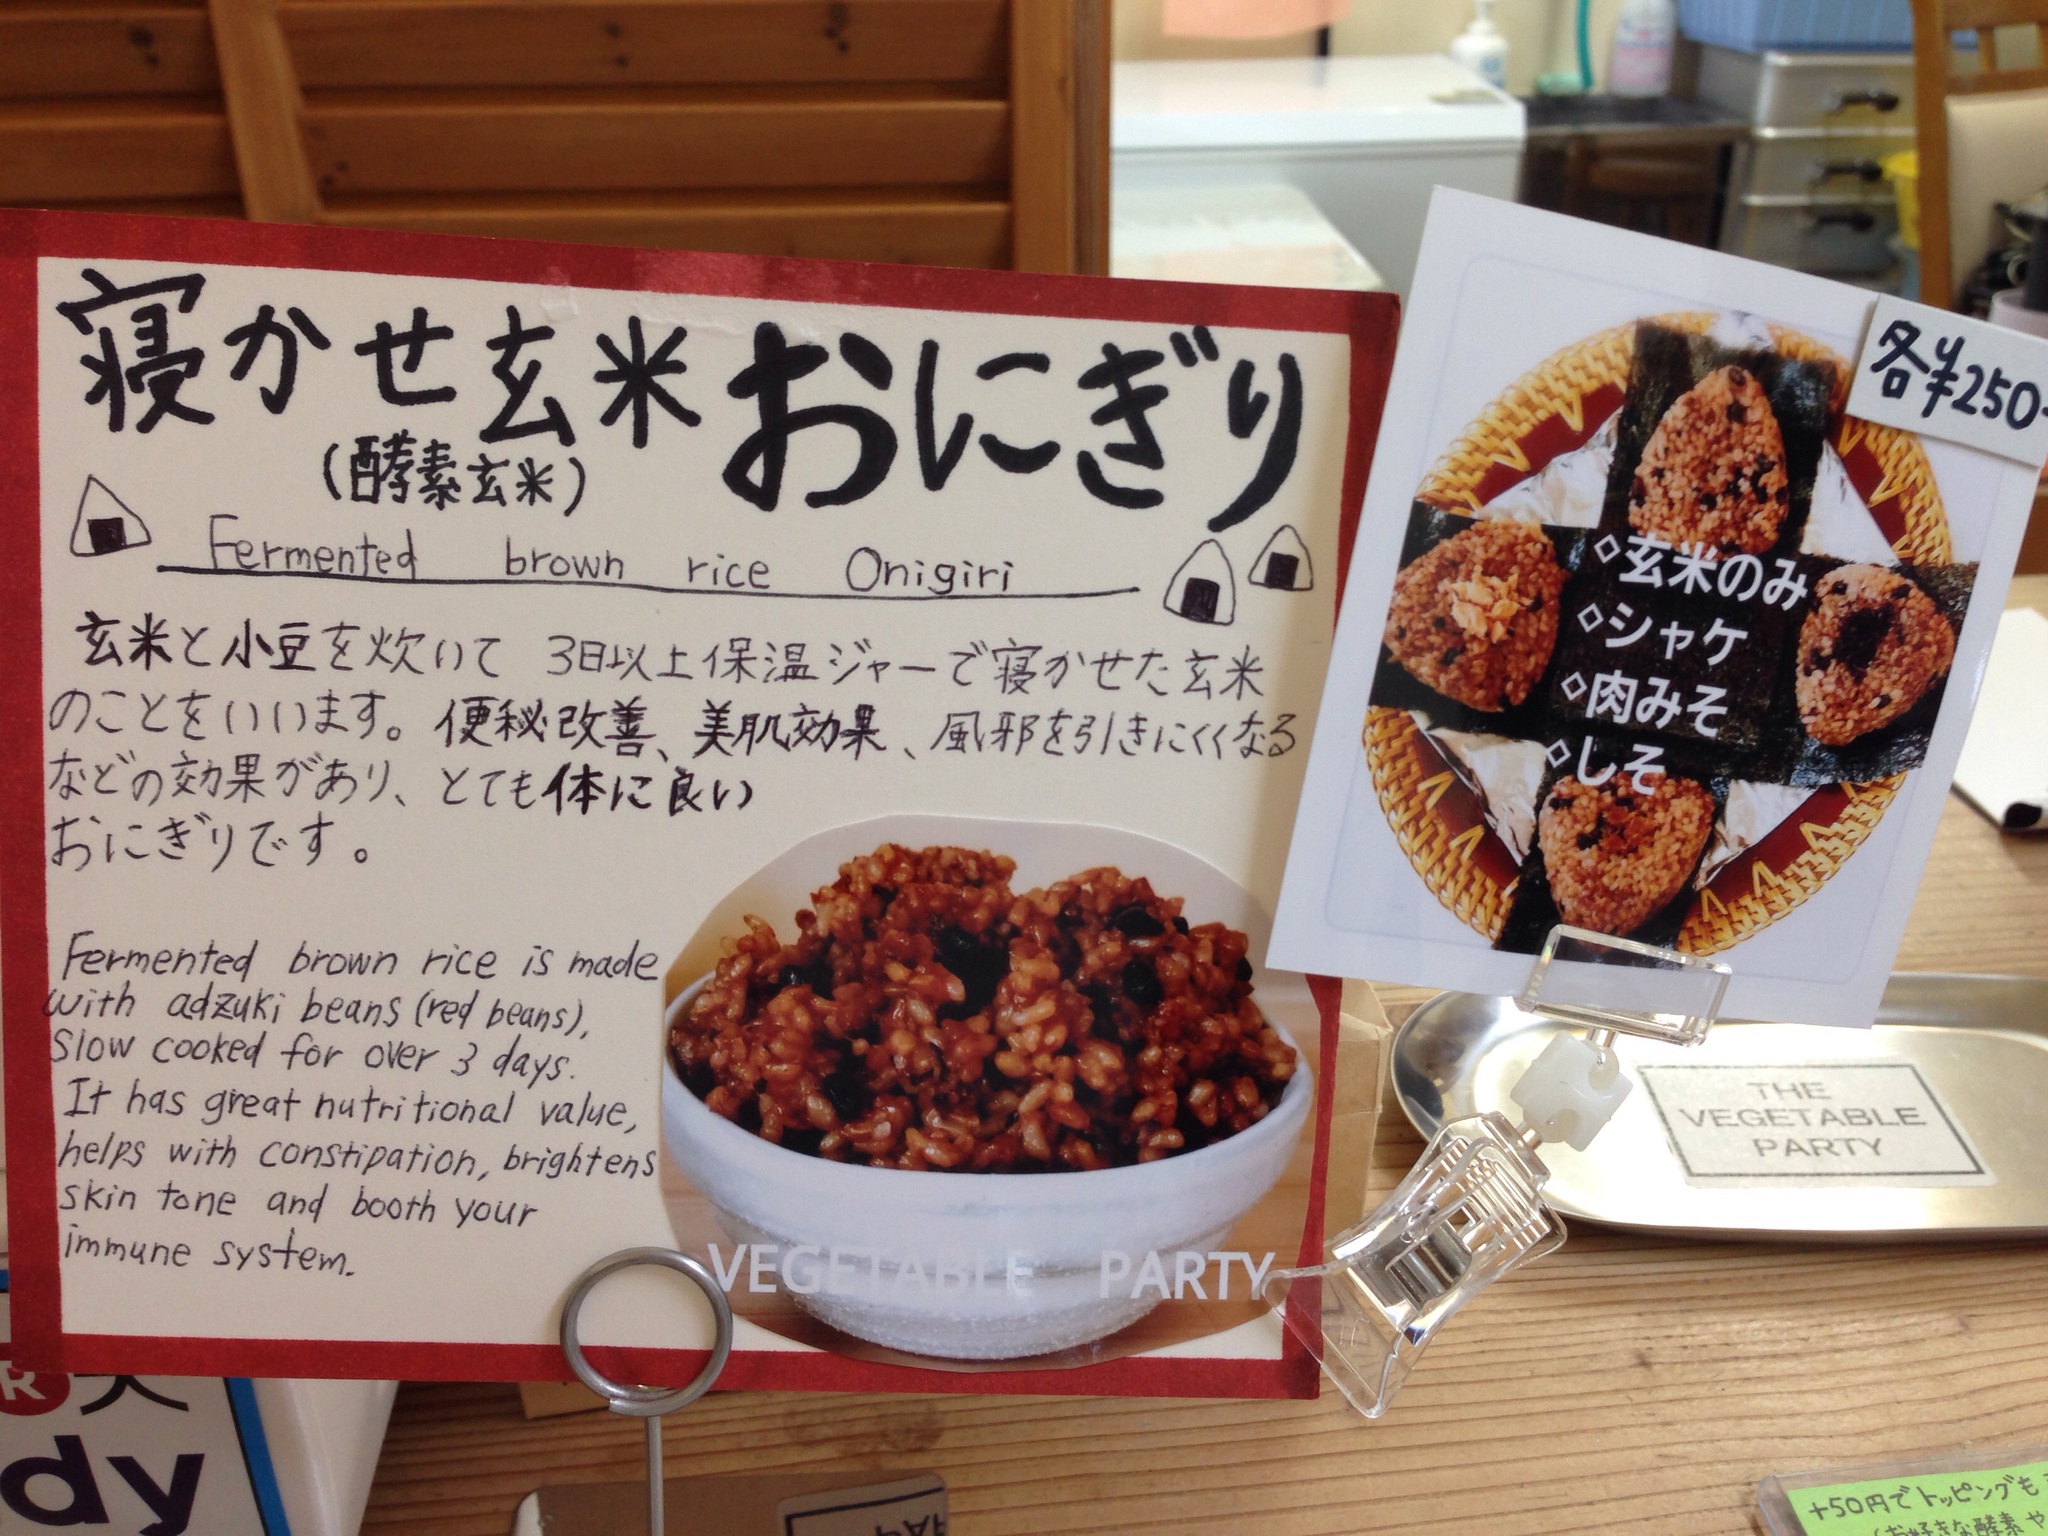 寝かせ玄米おにぎり
(酵素玄米)
Fermented brown rice Onigiri
玄米と小豆を炊いて 3日以上保温ジャーで寝かせた玄米
のことをいいます。便秘改善、美肌効果、風邪を引きにくくなる
などの効果があり、とても体に良い
おにぎりです。
Fermented brown rice is made
with adzuki beans (red beans),
Slow cooked for over 3 days.
It has great nutritional value,
helps with constipation, brightens
skin tone and booth your
immune system.
VEGETABLE PARTY
各¥250-
◇玄米のみ
◇シャケ
◇肉みそ
◇しそ
THE
VEGETABLE
PARTY
R
dy
+50円でトッピングも
(お好きな酵素や